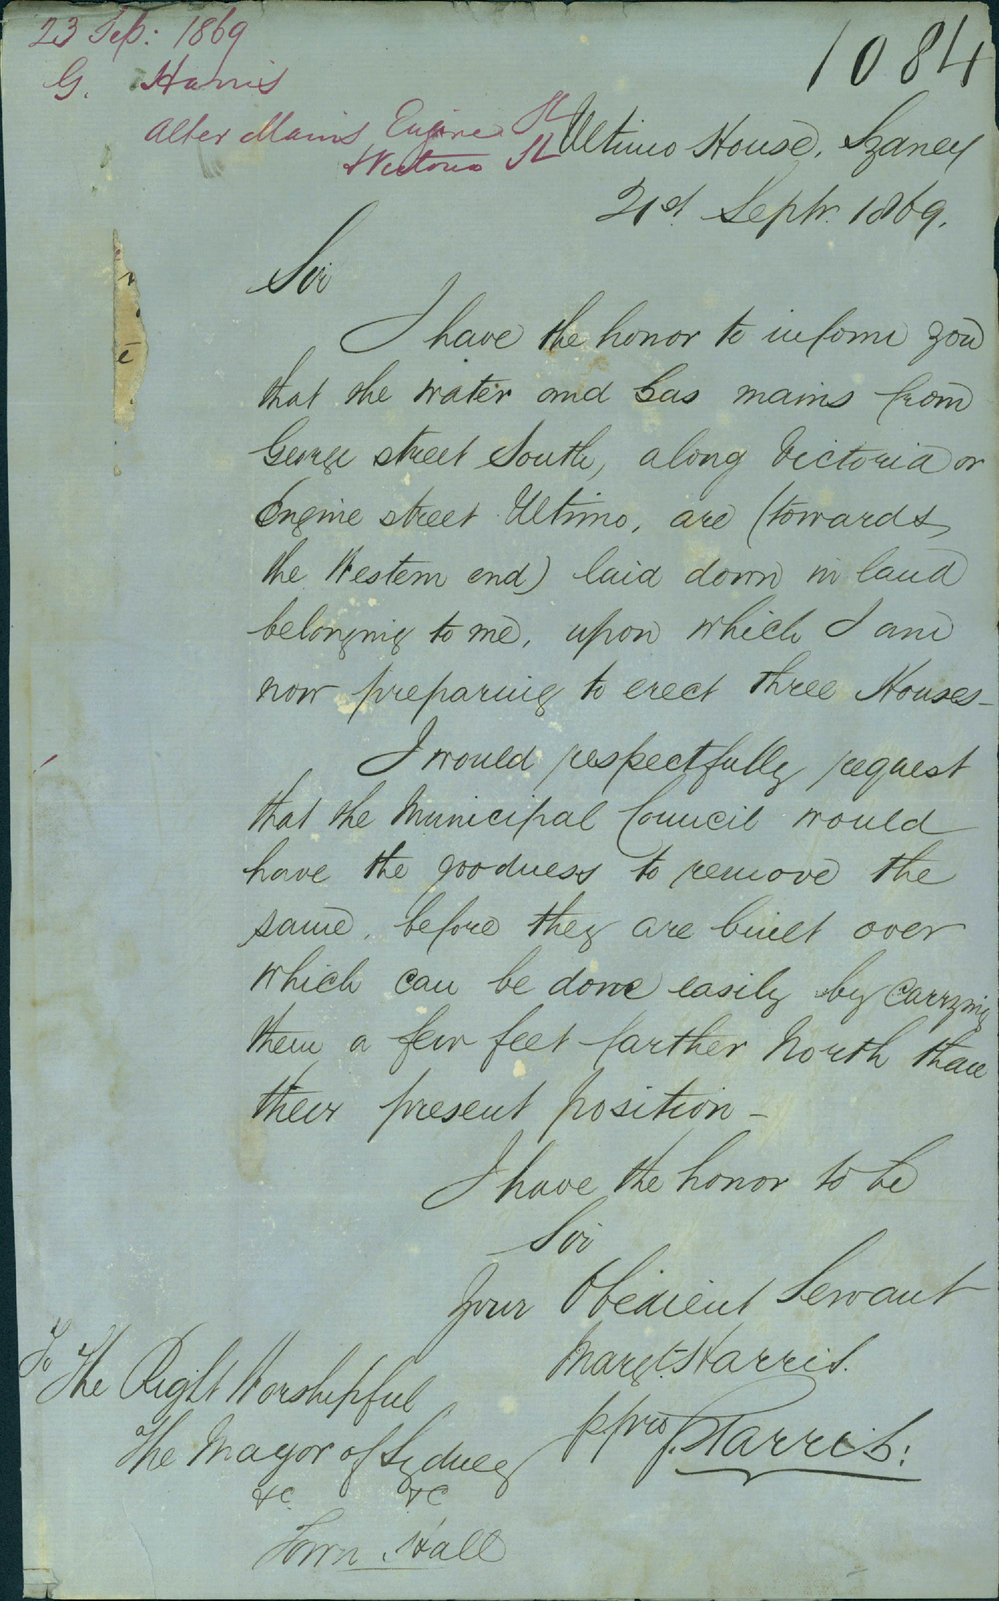 23 Sep: 1869
G. Harris
alter Mains Engine St
& Victoria St
1084
Ultimo House, Sydney
21st Septr. 1869.
Sir
I have the honor to inform you
that the water and Gas mains from
George street South, along Victoria or
Engine street Ultimo, are (towards
the Western end) laid down in land
belonging to me, upon which I am
now preparing to erect three Houses-
I would respectfully request
that the Municipal Council would
have the goodness to remove the
same, before they are built over
which can be done easily by carrying
them a few feet farther North than
their present position-
I have the honor to be
Sir
Your Obedient Servant
Margt. Harris.
ppro J. Harris:
To The Right Worshipful
The Mayor of Sydney
&c &c
Town Hall